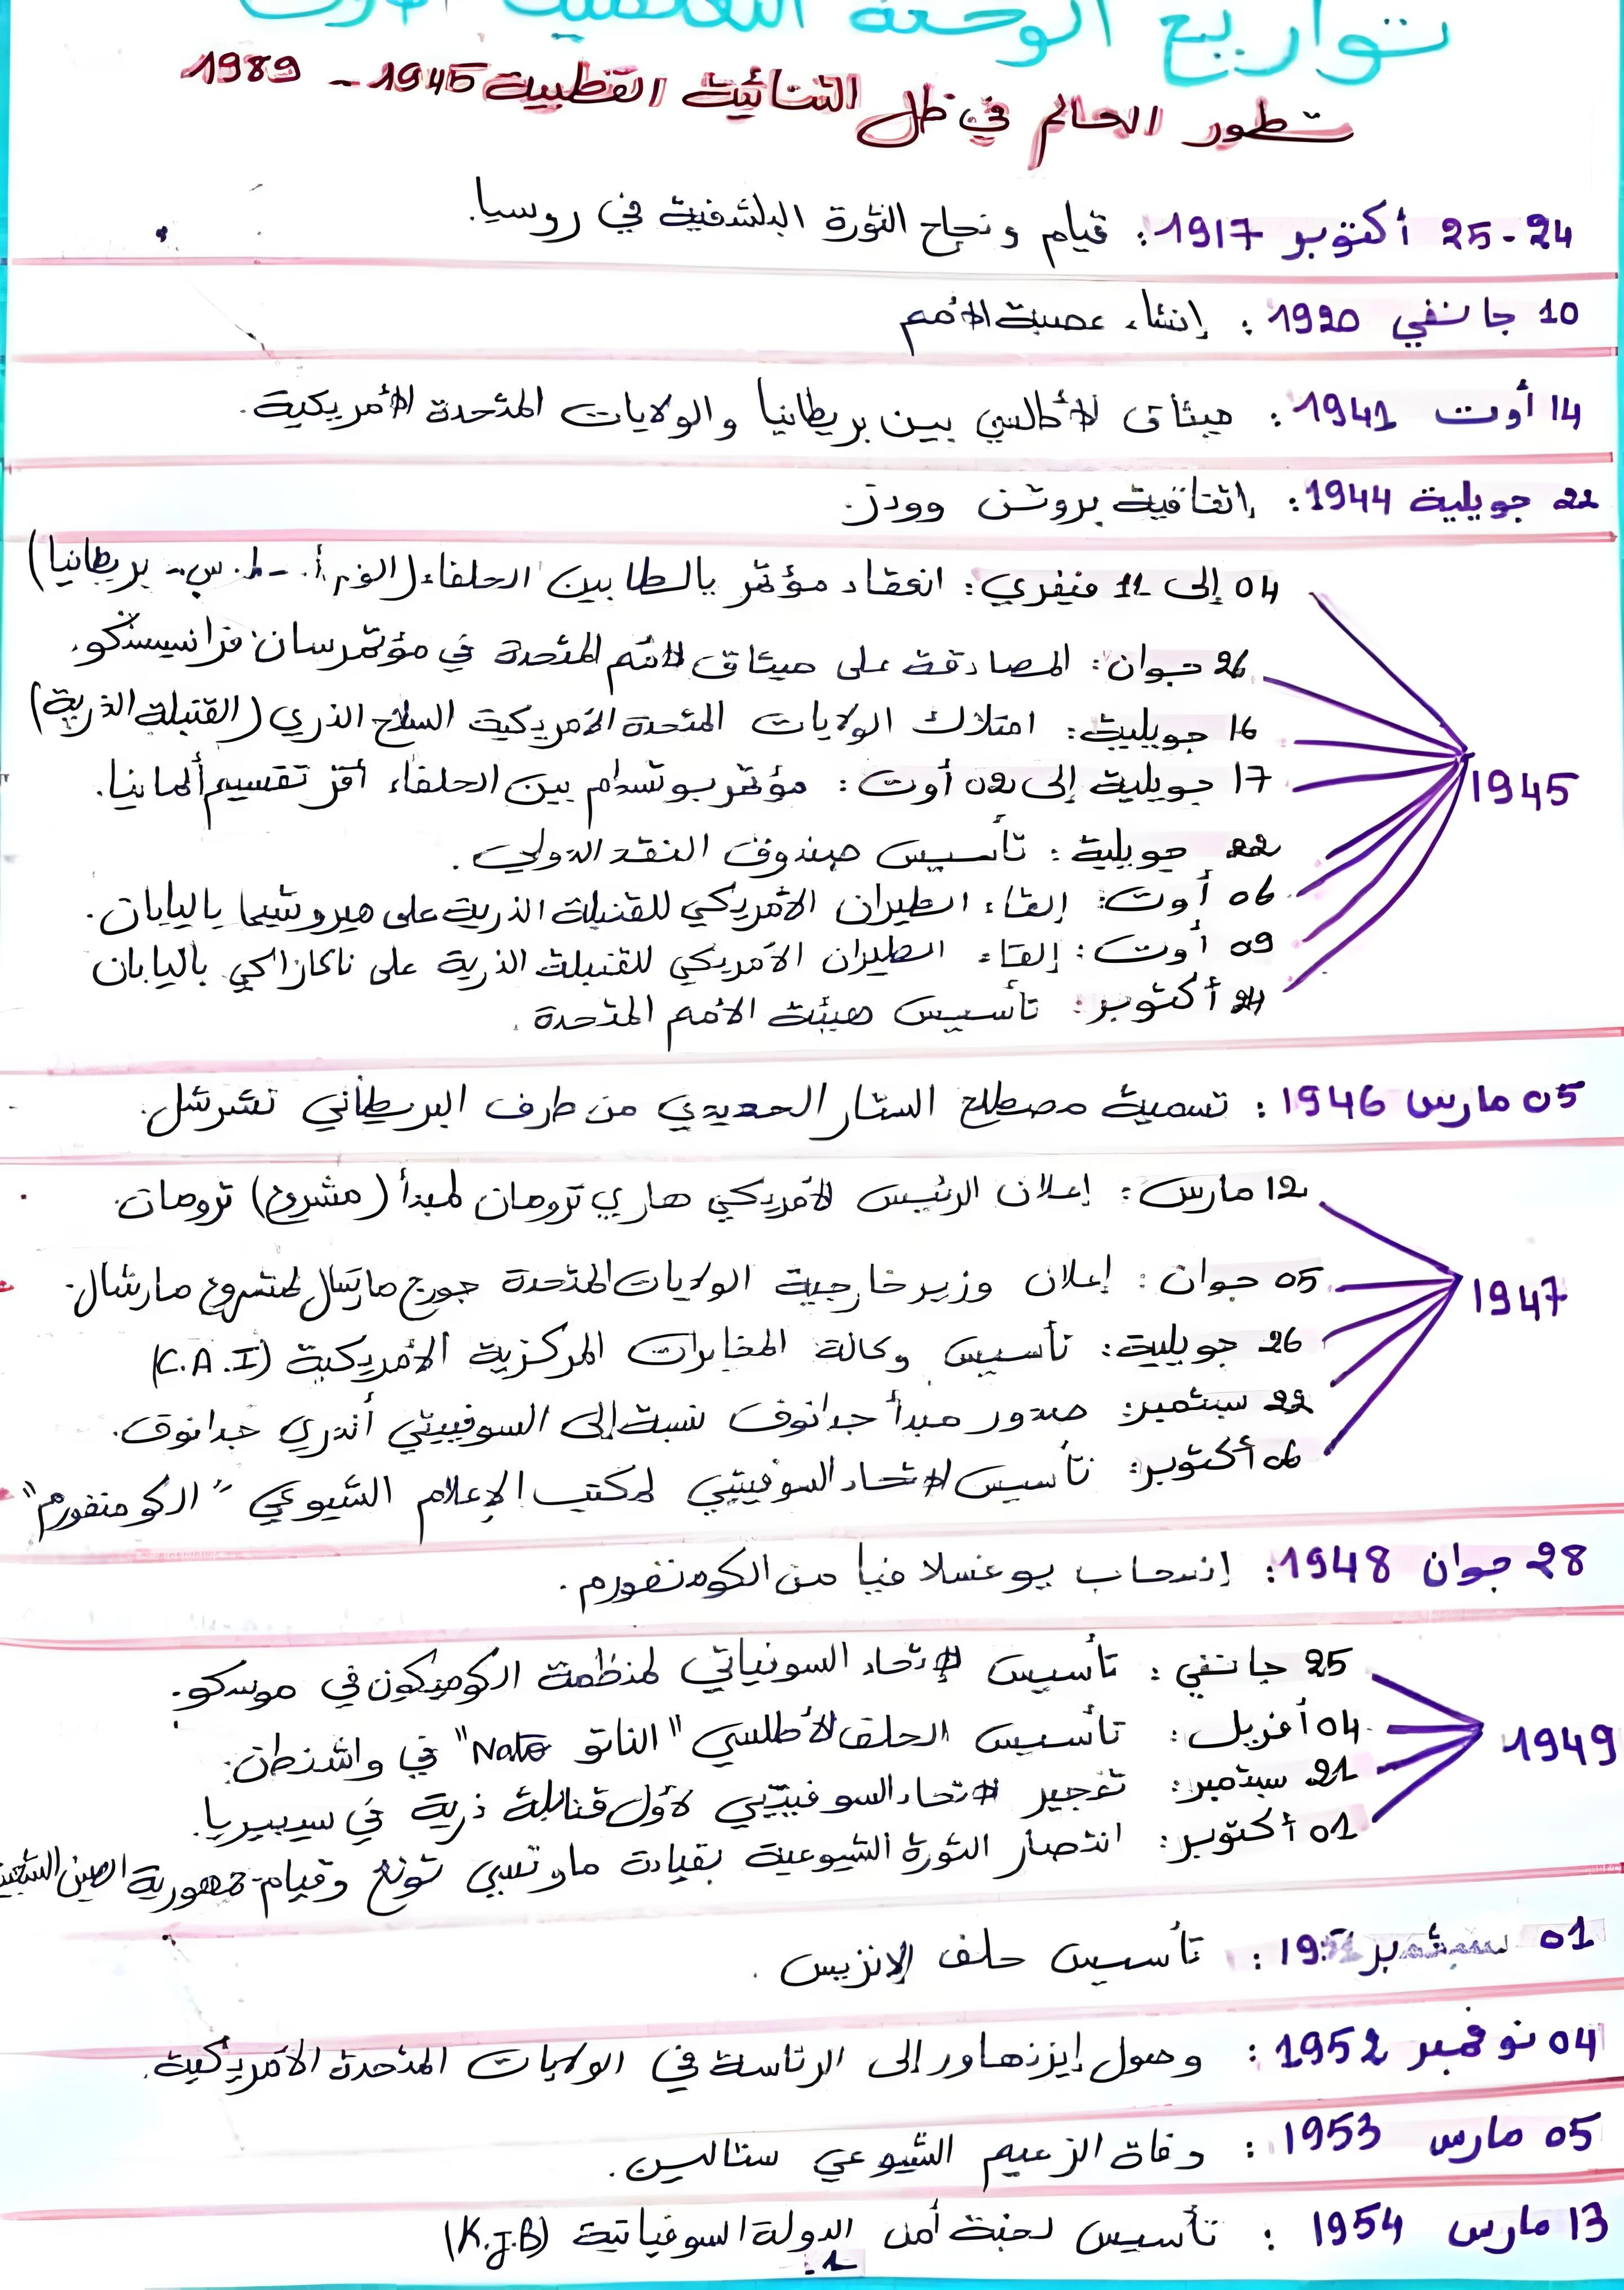 تواريخ الوحدة التعلمية الأولى
تطور العالم في ظل الثنائية القطبية 1945 - 1989
24-25 أكتوبر 1917: قيام ونجاح الثورة البلشفية في روسيا.
10 جانفي 1920: إنشاء عصبة الأمم
14 أوت 1941: ميثاق الأطلسي بين بريطانيا والولايات المتحدة الأمريكية.
22 جويلية 1944: اتفاقية بروتن وودز.
1945
04 إلى 11 فيفري: انعقاد مؤتمر يالطا بين الحلفاء (الو.م.أ. - إ.س - بريطانيا)
26 جوان: المصادقة على ميثاق الأمم المتحدة في مؤتمر سان فرانسيسكو.
16 جويلية: امتلاك الولايات المتحدة الأمريكية السلاح الذري (القنبلة الذرية)
17 جويلية إلى 02 أوت: مؤتمر بوتسدام بين الحلفاء أقر تقسيم ألمانيا.
22 جويلية: تأسيس صندوق النقد الدولي.
06 أوت: إلقاء الطيران الأمريكي للقنبلة الذرية على هيروشيما باليابان.
09 أوت: إلقاء الطيران الأمريكي للقنبلة الذرية على ناكازاكي باليابان
24 أكتوبر: تأسيس هيئة الأمم المتحدة.
05 مارس 1946: تسمية مصطلح الستار الحديدي من طرف البريطاني تشرشل.
1947
12 مارس: إعلان الرئيس الأمريكي هاري ترومان لمبدأ (مشروع) ترومان.
05 جوان: إعلان وزير خارجية الولايات المتحدة جورج مارشال لمشروع مارشال.
26 جويلية: تأسيس وكالة المخابرات المركزية الأمريكية (C.A.I)
22 سبتمبر: صدور مبدأ جدانوف نسبة إلى السوفييتي أندري جدانوف.
06 أكتوبر: تأسيس الاتحاد السوفييتي لمكتب الإعلام الشيوعي "الكومنفورم"
28 جوان 1948: إنسحاب يوغسلافيا من الكومنفورم.
1949
25 جانفي: تأسيس الإتحاد السوفياتي لمنظمة الكوميكون في موسكو.
04 أفريل: تأسيس الحلف الأطلسي "الناتو Nato" في واشنطن.
21 سبتمبر: تفجير الاتحاد السوفييتي لأول قنبلة ذرية في سيبيريا.
01 أكتوبر: انتصار الثورة الشيوعية بقيادة ماو تسي تونغ وقيام جمهورية الصين
01 سبتمبر: تأسيس حلف الانزيس.
04 نوفمبر 1952: وصول إيزنهاور إلى الرئاسة في الولايات المتحدة الأمريكية.
05 مارس 1953: وفاة الزعيم الشيوعي ستالين.
13 مارس 1954: تأسيس لجنة أمن الدولة السوفياتية (K.J.B)
1